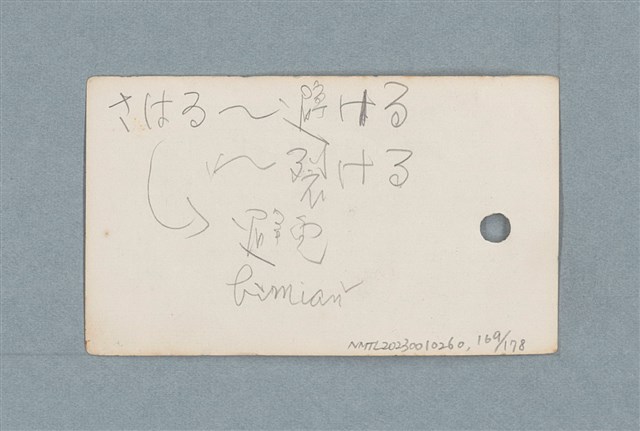 さはる〜避ける
〜裂ける
避免
bìmiǎn
NMTL20230010260, 169/178